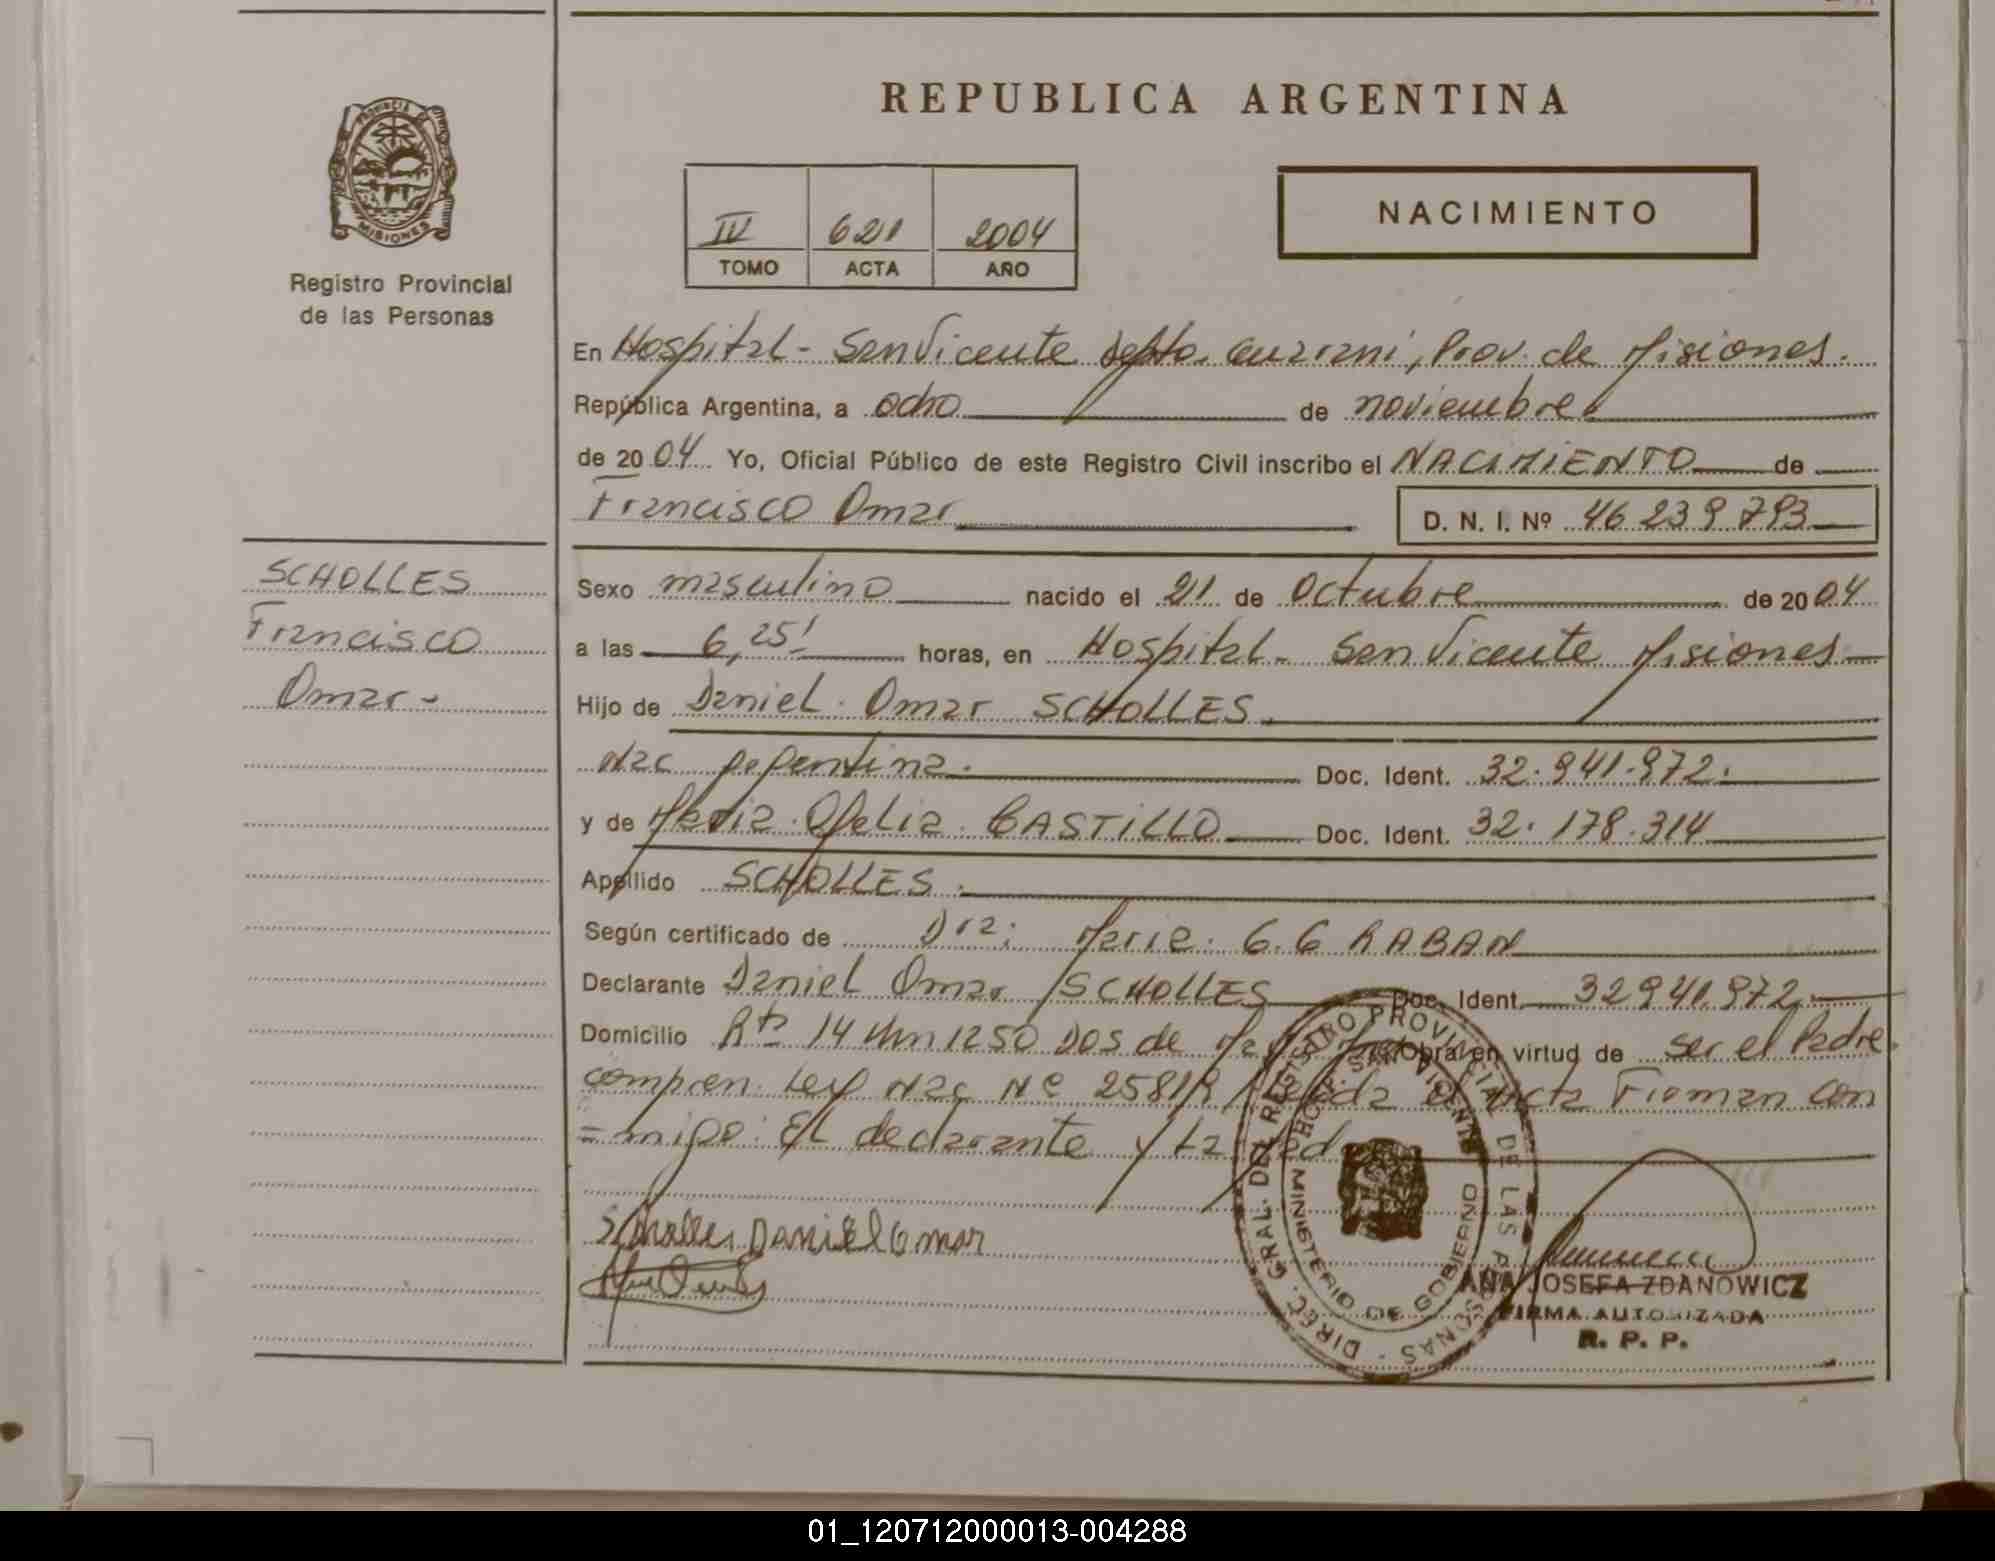 REPUBLICA ARGENTINA
PROVINCIA DE
MISIONES
Registro Provincial
de las Personas
IV 621 2004
TOMO ACTA AÑO
NACIMIENTO
En Hospital - San Vicente Depto. Guarani, Prov. de Misiones.
República Argentina, a ocho de noviembre
de 2004 Yo, Oficial Público de este Registro Civil inscribo el NACIMIENTO de
Francisco Omar D. N. I. Nº 46 239 793
SCHOLLES
Francisco
Omar -
Sexo masculino nacido el 21 de Octubre de 2004
a las 6,25' horas, en Hospital - San Vicente Misiones
Hijo de Daniel Omar SCHOLLES
Nac Argentina. Doc. Ident. 32.941.972.
y de Maria Ofelia CASTILLO Doc. Ident. 32.178.314
Apellido SCHOLLES.
Según certificado de Dra: Maria G.G RABAN
Declarante Daniel Omar SCHOLLES Doc. Ident. 32941972
Domicilio Rta 14 Km 1250 Dos de Mayo Obra en virtud de ser el Padre
compren. Ley Nac Nº 25819 Leida el Acta Firman con
=migo: El declarante y La
Scholles Daniel Omar
DIREC. GRAL. DEL REGISTRO PROVINCIAL DE LAS PERSONAS
SAN VICENTE
MINISTERIO DE GOBIERNO
ANA JOSEFA ZDANOWICZ
FIRMA AUTORIZADA
R. P. P.
01_120712000013-004288